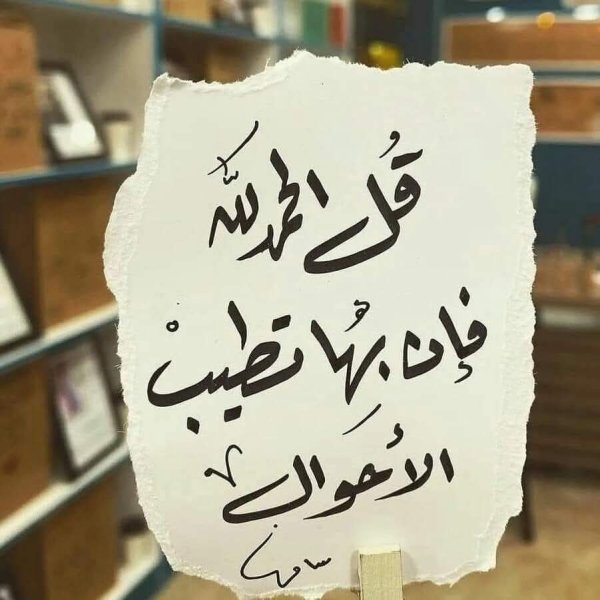 قُل الحمد لله
فإن بها تطيب
الأحوال